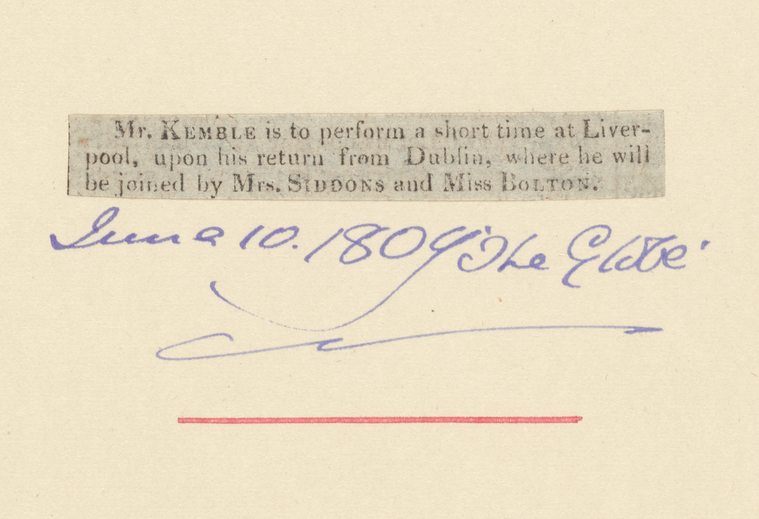 Mr. KEMBLE is to perform a short time at Liver-
pool, upon his return from Dublin, where he will
be joined by Mrs. SIDDONS and Miss BOLTON.
June 10. 1809 'The Globe'